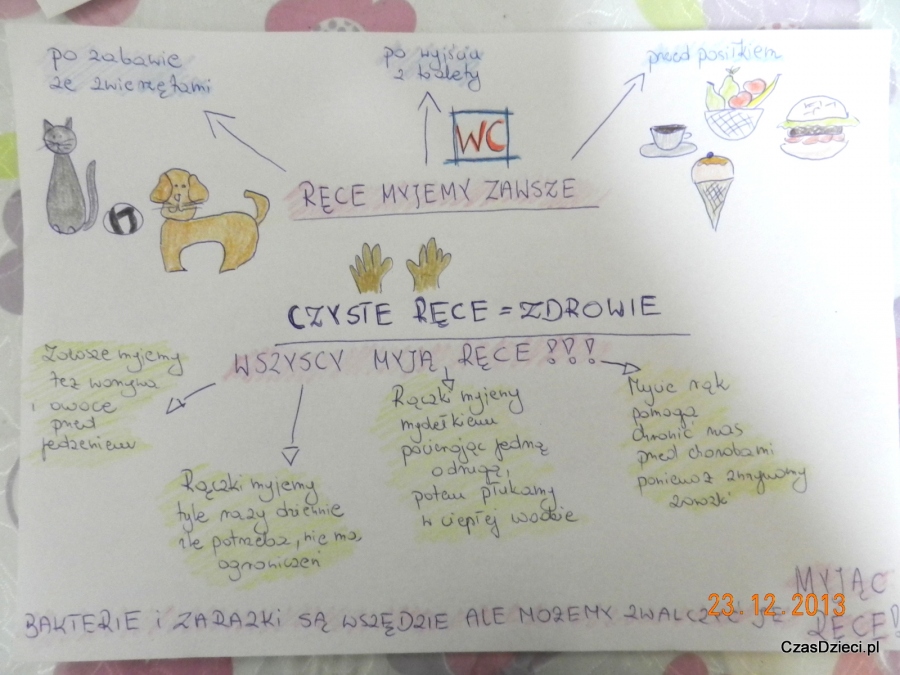 po zabawie
ze zwierzętami
po wyjściu
z toalety
przed posiłkiem
WC
RĘCE MYJEMY ZAWSZE
CZYSTE RĘCE = ZDROWIE
WSZYSCY MYJĄ RĘCE !!!
Zawsze myjemy
też warzywa
i owoce
przed
jedzeniem
Rączki myjemy
tyle razy dziennie
ile potrzeba, nie ma
ograniczeń
Rączki myjemy
mydełkiem
pocierając jedną
o drugą,
potem płukamy
w ciepłej wodzie
Mycie rąk
pomaga
chronić nas
przed chorobami
ponieważ zmywamy
zarazki
BAKTERIE i ZARAZKI SĄ WSZĘDZIE ALE MOŻEMY ZWALCZYĆ JE MYJĄC
RĘCE!
23.12.2013
CzasDzieci.pl